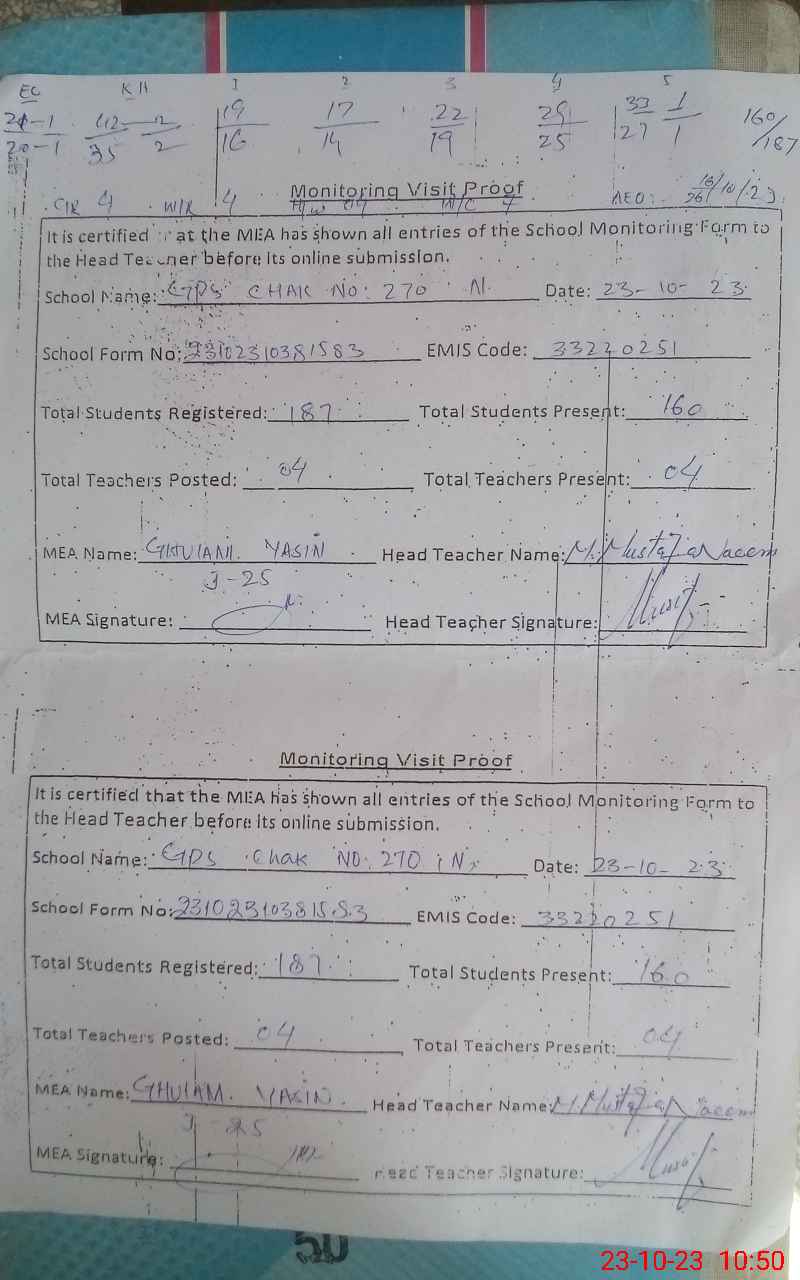 EC KH 1 2 3 4 5
21-1 42-2 19 17 22 29 33 1 160/187
20-1 35 2 16 14 19 25 27 1
Monitoring Visit Proof
C/R 4 W/R 4 W/C 7 AEO:
It is certified that the MEA has shown all entries of the School Monitoring Form to
the Head Teacher before its online submission.
School Name: GPS CHAK NO: 270 N. Date: 23-10-23
School Form No: 23102310381583 EMIS Code: 33220251
Total Students Registered: 187 Total Students Present: 160
Total Teachers Posted: 04 Total Teachers Present: 04
MEA Name: GHULAM. YASIN Head Teacher Name: M. Mustafa Naeem
J-25
MEA Signature: Head Teacher Signature:
Monitoring Visit Proof
It is certified that the MEA has shown all entries of the School Monitoring Form to
the Head Teacher before its online submission.
School Name: GPS Chak NO: 270 N. Date: 23-10-23
School Form No: 23102310381583 EMIS Code: 33220251
Total Students Registered: 187 Total Students Present: 160
Total Teachers Posted: 04 Total Teachers Present: 04
MEA Name: GHULAM. YASIN. Head Teacher Name: M. Mustafa Naeem
J-25
MEA Signature: Head Teacher Signature:
50
23-10-23 10:50